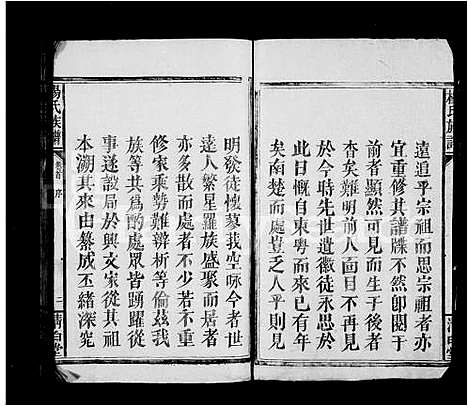 遠追乎宗祖而思宗祖者
宜重修其譜牒不然卽閱于
前者顯然可見而生于後者
杳矣難明前人面目不一再見
於今時先世遺徽徒永思于
此日慨自來東此處已有年
矣南楚而之人乎則我
明發徒懷蓼我空咏今者世
遠人繁星羅族盛聚而居者
亦多散而處者勢力不重
修家乘勢難辨析等倫茲我
族等共爲酌處眾皆踴躍從
事遂設局於興文家從其祖
本溯其來由纂成丕緒深究
楊氏族譜
卷首 序
二 清白堂